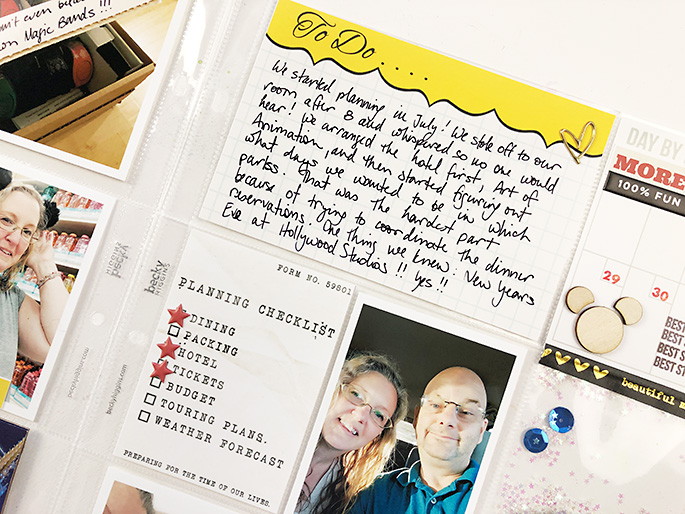 n't even belie
on Magic Bands !!!
To Do....
We started planning in July! We stole off to our
room after 8 and whispered so no one would
hear! We arranged the hotel first, Art of
Animation, and then started figuring out
what days we wanted to be in which
parks. That was the hardest part
because of trying to coordinate the dinner
reservations. One thing we knew: New Years
Eve at Hollywood Studios !! Yes !!
DAY BY
MORE
100% FUN
29
30
BEST
BEST
BEST S
BEST ST
beautiful m
becky
HIGGINS
project life
beckyhiggins.com
FORM NO. 59801
PLANNING CHECKLIST
DINING
PACKING
HOTEL
TICKETS
BUDGET
TOURING PLANS.
WEATHER FORECAST
PREPARING FOR THE TIME OF OUR LIVES.